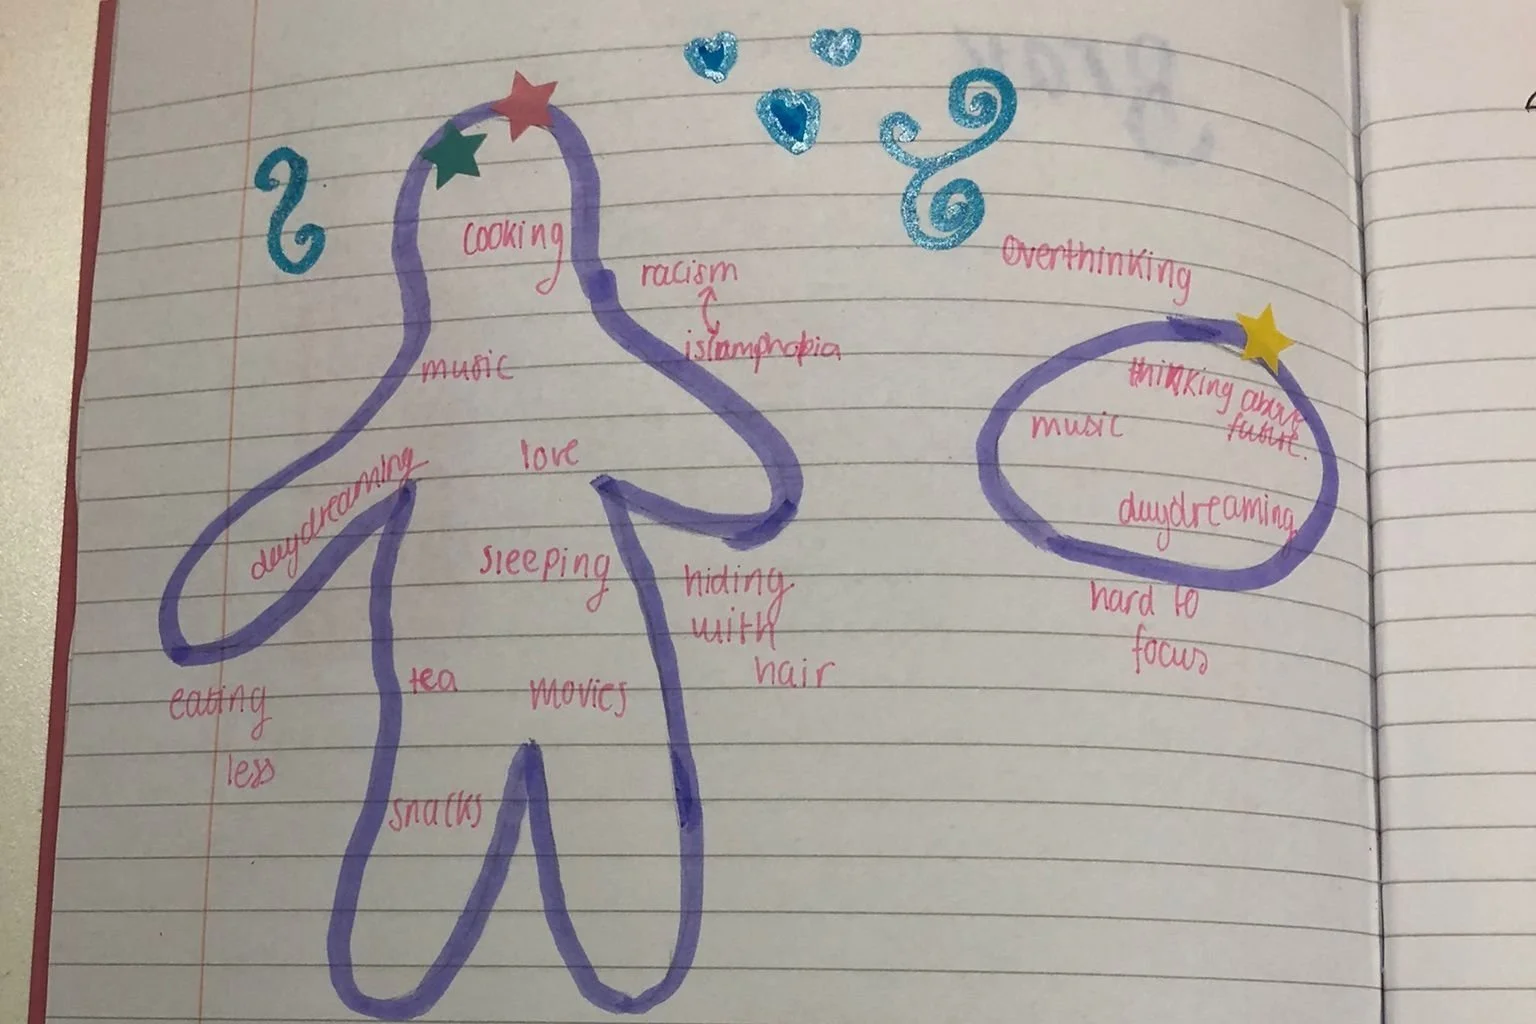 cooking
racism
islamphobia
music
love
daydreaming
sleeping
hiding
with
hair
tea
movies
eating
less
snacks
overthinking
thinking about
future.
music
daydreaming
hard to
focus